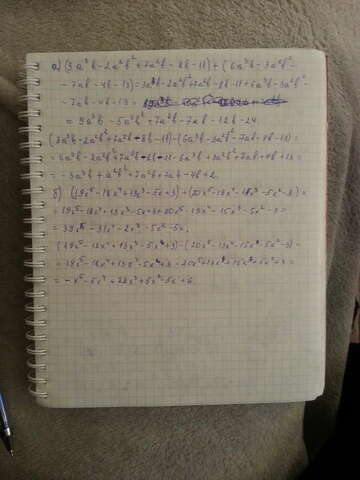 а) (3a³b-2a²b²+7a²b-8b-11)+(6a³b-3a²b²-
-7ab-4b-13)=3a³b-2a²b²+7a²b-8b-11+6a³b-3a²b²-
-7ab-4b-13=
=9a³b-5a²b²+7a²b-7ab-12b-24.
(3a³b-2a²b²+7a²b-8b-11)-(6a³b-3a²b²-7ab-4b-13)=
=3a³b-2a²b²+7a²b-8b-11-6a³b+3a²b²+7ab+4b+13=
=-3a³b+a²b²+7a²b+7ab-4b+2.
б) (19x⁵-18x⁴+13x³-5x+3)+(20x⁵-13x⁴-15x³-5x²-3)=
=19x⁵-18x⁴+13x³-5x+3+20x⁵-13x⁴-15x³-5x²-3=
=39x⁵-31x⁴-2x³-5x²-5x.
(19x⁵-18x⁴+13x³-5x+3)-(20x⁵-13x⁴-15x³-5x²-3)=
=19x⁵-18x⁴+13x³-5x+3-20x⁵+13x⁴+15x³+5x²+3=
=-x⁵-5x⁴+28x³+5x²-5x+6.